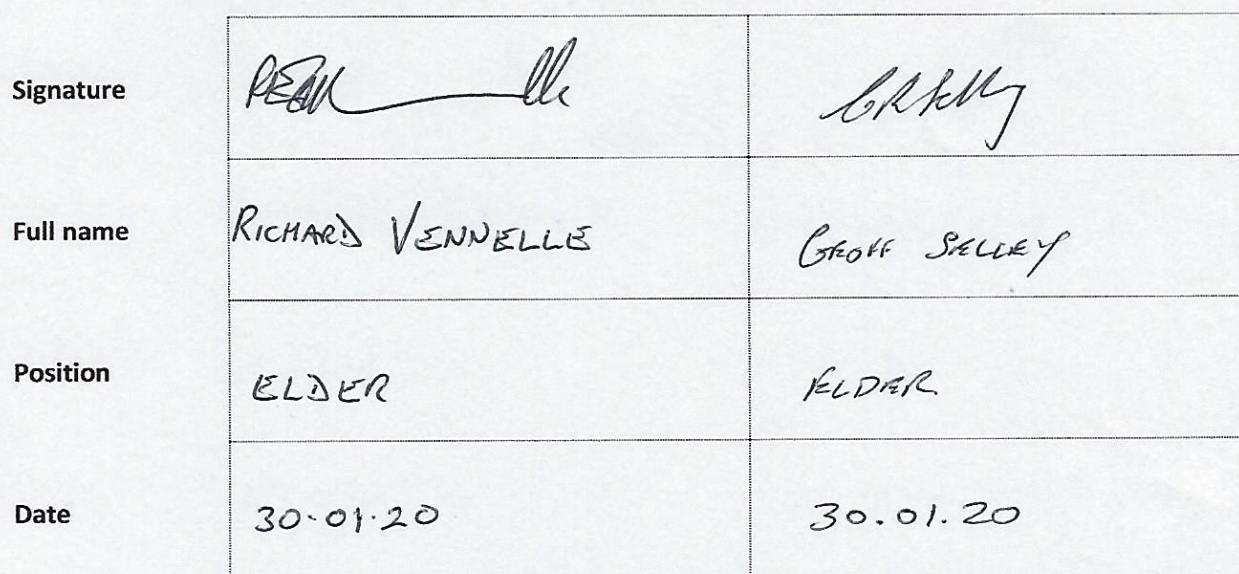 Signature
Full name RICHARD VENNELLE GEOFF SELLEY
Position ELDER ELDER
Date 30.01.20 30.01.20